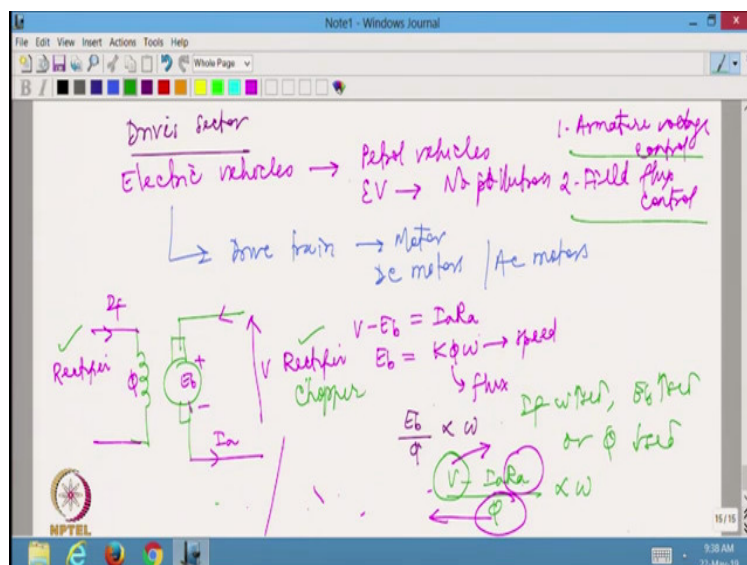 Note1 - Windows Journal
File Edit View Insert Actions Tools Help
Whole Page
B I
Drives Sector
Electric vehicles → Petrol vehicles
EV → No pollution
1. Armature voltage control
2. Field flux control
Drive train → Motor
DC motors / AC motors
If
Rectifier
φ
+
Eb
-
Ia
V
Rectifier
Chopper
V - Eb = IaRa
Eb = Kφω → speed
flux
Eb/φ ∝ ω
If ω ↑sed, Eb ↑sed
or φ ↓sed
V - IaRa / φ ∝ ω
NPTEL
15/15
9:38 AM
22-May-19